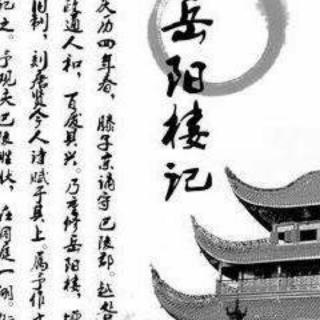 岳阳楼记
庆历四年春，滕子京谪守巴陵郡。越
政通人和，百废具兴。乃重修岳阳楼，增
旧制，刻唐贤今人诗赋于其上。属予作
记之。予观夫巴陵胜状，在洞庭一湖。